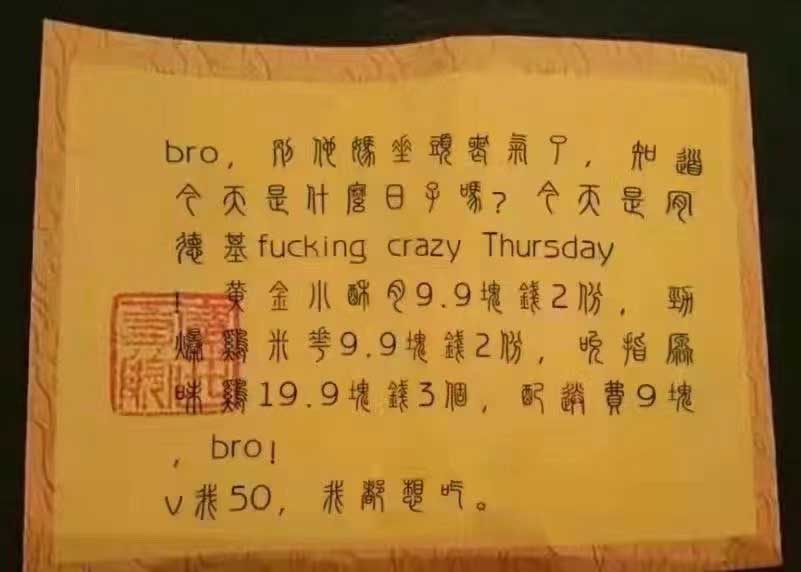 bro，别他媽垂頭喪氣了，知道
今天是什麼日子嗎？今天是肯
德基fucking crazy Thursday
！黄金小酥肉9.9塊錢2份，勁
爆雞米花9.9塊錢2份，吮指原
味雞19.9塊錢3個，配送費9塊
，bro！
v我50，我都想吃。